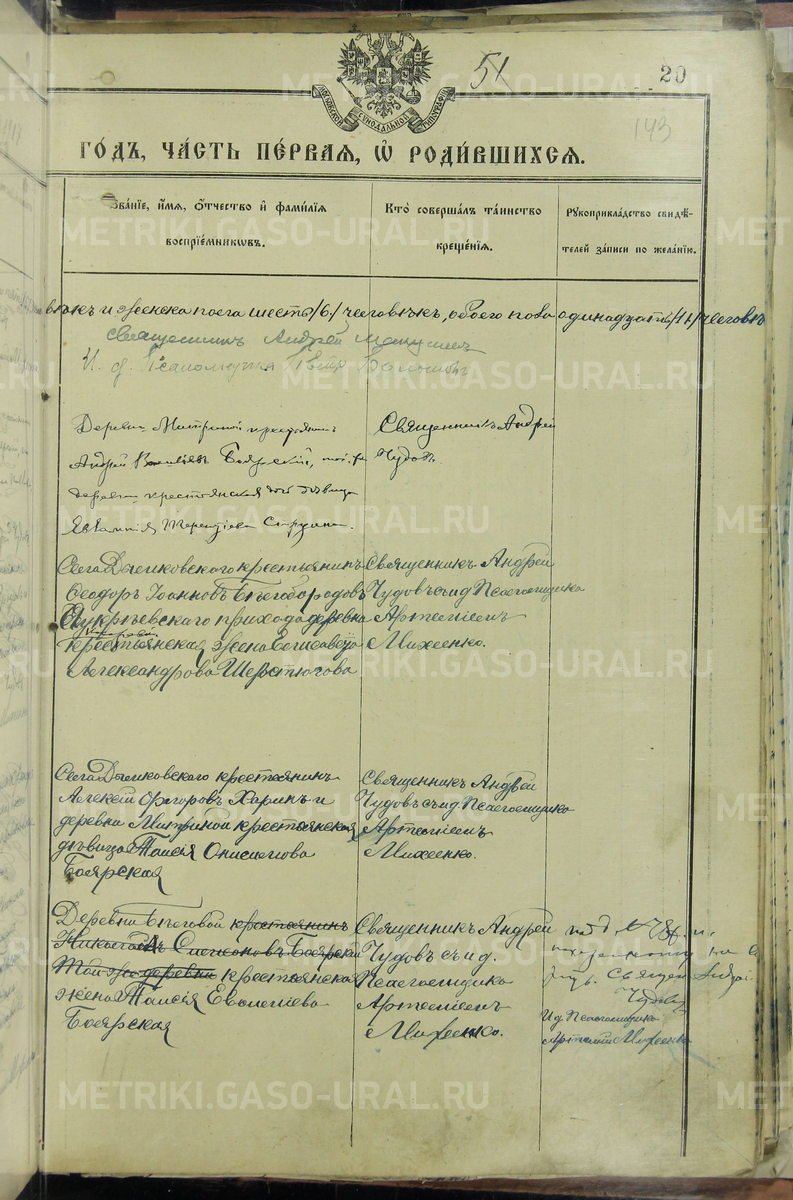 51
20
143
МОСКОВСКОЙ СѴНОДАЛЬНОЙ ТИПОГРАФІИ
ГО́ДЪ, ЧА́СТЬ ПЕ́РВАЯ, Ѡ РОДИ́ВШИХСЯ.
Зва́нїе, и҆́мѧ, ѻ҆́тчество и҆ фами́лїѧ
воспрїе́мникѡвъ.
Кто̀ соверша́лъ та́инство
креще́нїѧ.
Рꙋкоприкла́дство свидѣ́-
телей за́писи по жела́нїю.
вѣкъ и женска пола шесть /6/ человѣкъ, обоего пола одинадцать /11/ человѣкъ
Священникъ Андрей
И. д. Псаломщика Петръ
Деревни Митриной крестьянинъ
Андрей Васильевъ Боярский, той-же
деревни крестьянская дѣвица
Евлампія Терентіева
Священникъ Андрей
Чудовъ.
Села Дымковского крестьянинъ
Феодоръ Іоанновъ Бѣлобородовъ
прихода деревни
крестьянская жена Елисавета
Александрова Шерстюгова
Священникъ Андрей
Чудовъ съ и д Псаломщика
Артеміемъ
Михеенко.
Села Дымковского крестьянинъ
Алексѣй Григоровъ Харинъ и
деревни Митриной крестьянская
дѣвица Таисія Онисимова
Боярская
Священникъ Андрей
Чудовъ съ и д Псаломщика
Артеміемъ
Михеенко.
Деревни Бѣговой крестьянинъ
Николай Симеоновъ Боярский
Той же деревни крестьянская
жена Таисія Евсигніева
Боярская
Священникъ Андрей
Чудовъ съ и д.
Псаломщика
Артеміемъ
Михеенко.
Священ. Андрей
Чудовъ
И д Псаломщика
Артемій Михеенко
METRIKI.GASO-URAL.RU